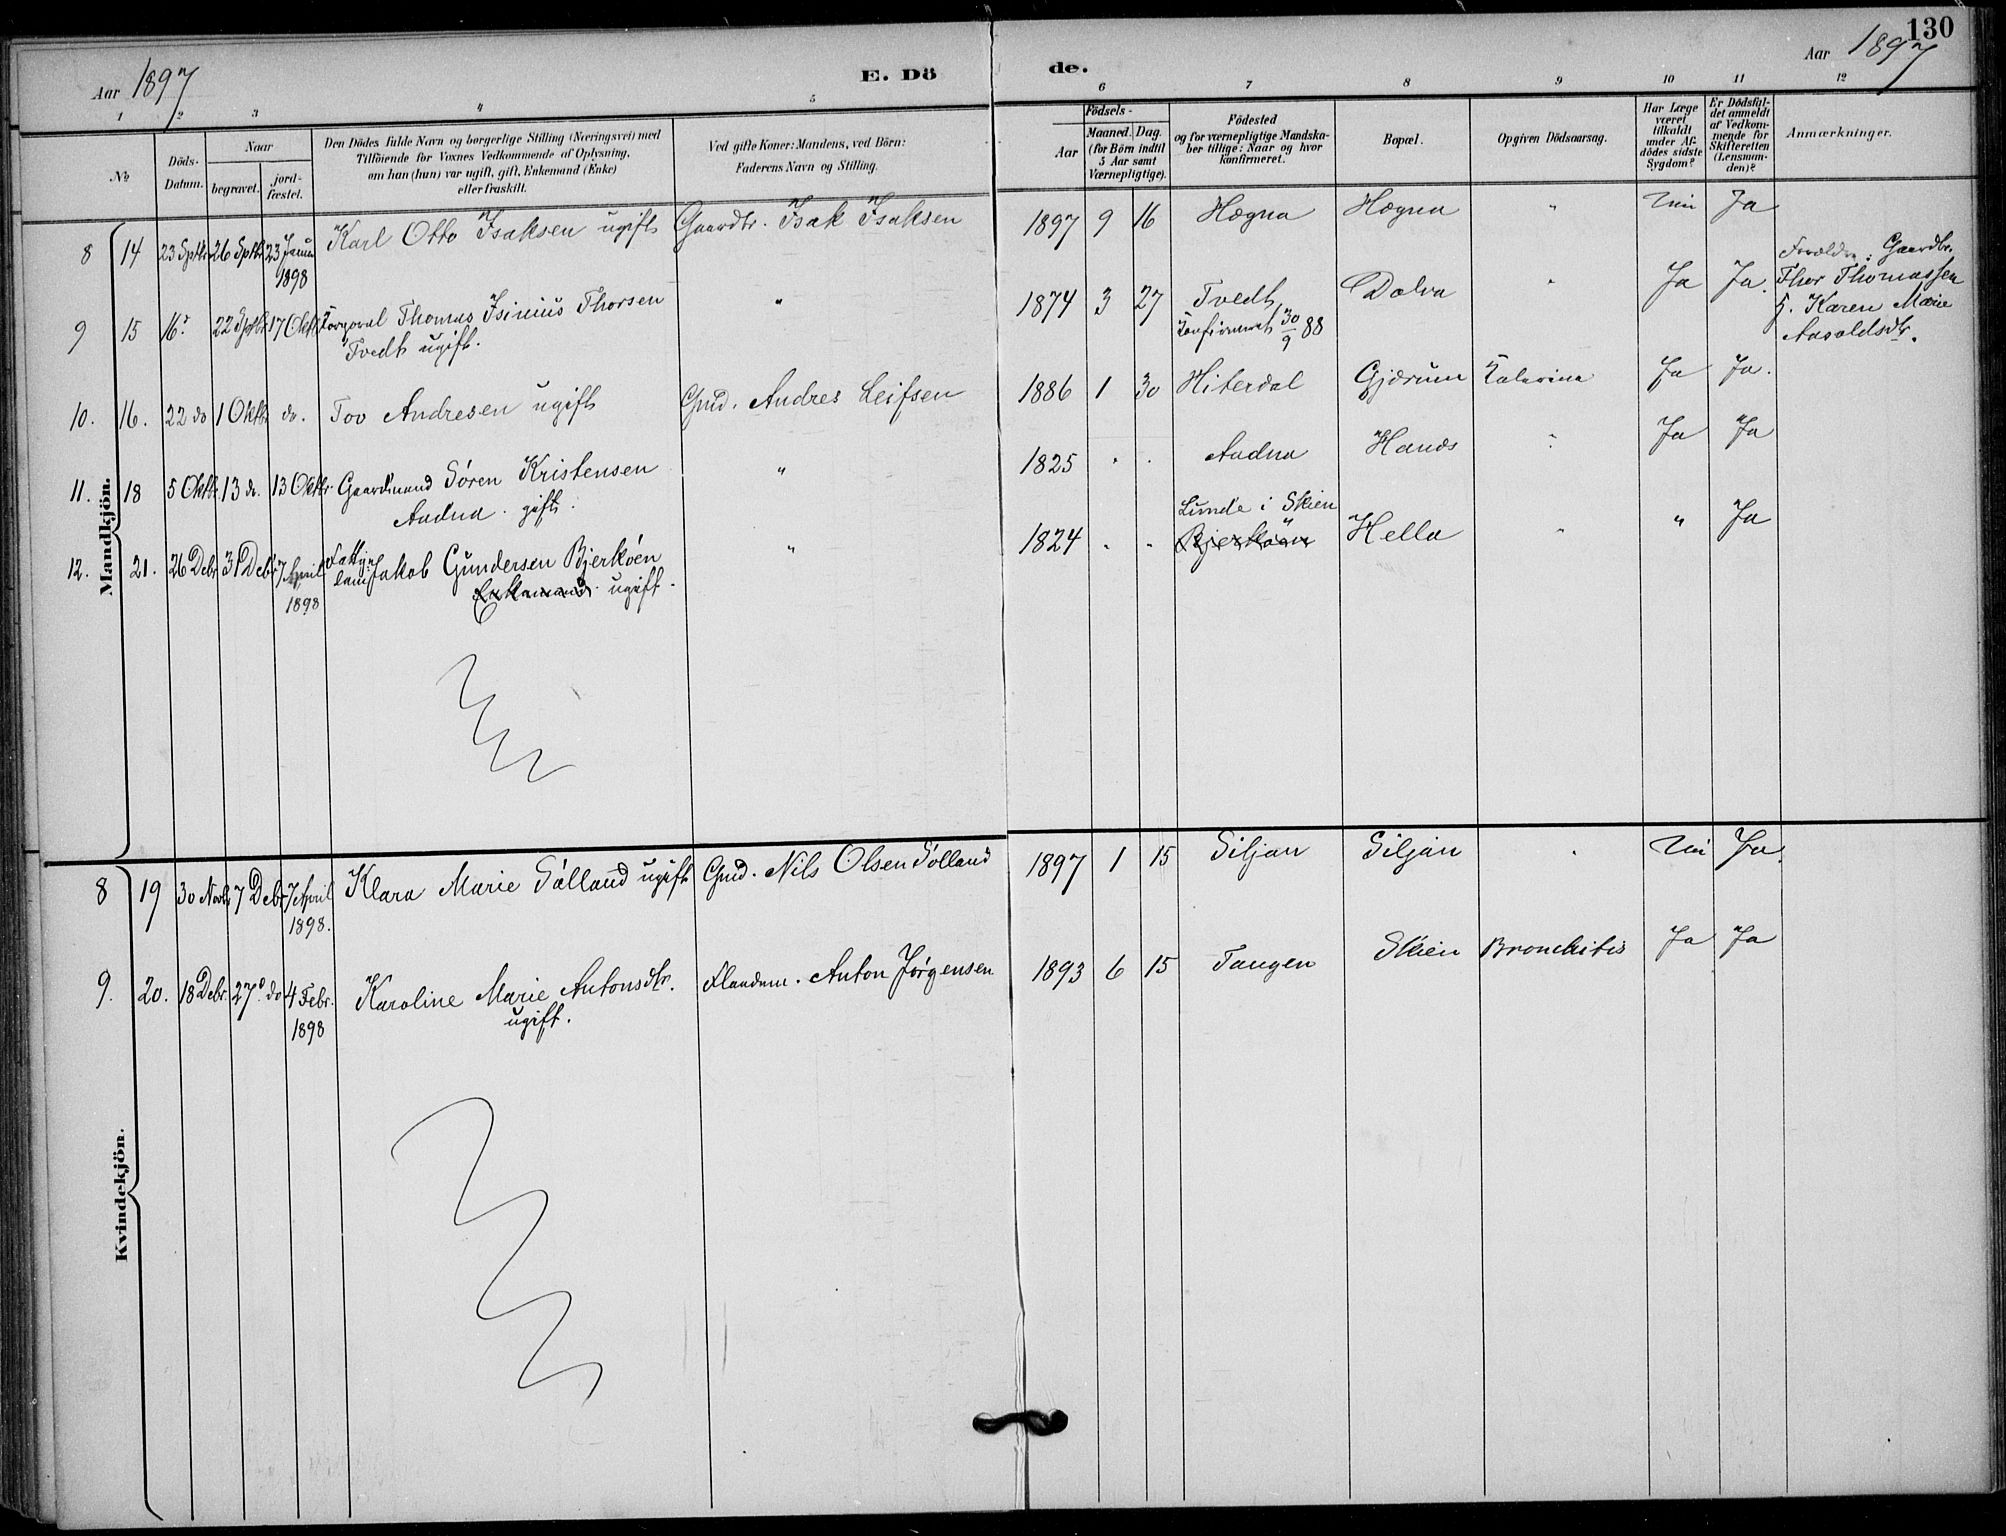 130
Aar 1897
E. Dö
de.
Aar 1897
1 2 3 4 5 6 7 8 9 10 11 12
№
Döds-
Datum.
Naar
begravet.
jord-
fæstet.
Den Dödes fulde Navn og borgerlige Stilling (Næringsvei) med
Tilföiende for Voxnes Vedkommende af Oplysning,
om han (hun) var ugift, gift, Enkemand (Enke)
eller fraskilt.
Ved gifte Koner: Mandens, ved Börn:
Faderens Navn og Stilling.
Aar
Födsels-
Maaned. Dag.
(for Börn indtil
5 Aar samt
Værnepligtige).
Födested
og for værnepligtige Mandska-
ber tillige: Naar og hvor
konfirmeret.
Bopæl.
Opgiven Dödsaarsag.
Har Læge
været
tilkaldt
under Af-
dödes sidste
Sygdom?
Er Dödsfal-
det anmeldt
af Vedkom-
mende for
Skifteretten
(Lensman-
den)?
Anmærkninger.
Mandkjön.
8 14 23 Sptbr 26 Sptbr 23 Januar Karl Otto Isaksen ugift Gaardbr. Isak Isaksen 1897 9 16 Hægna Hægna " Nei Ja
1898
9 15 16 22 Sptbr 17 Oktbr Thomas Isinius Thorsen " 1874 3 27 Tvedt Dolva " Ja Ja.
Tvedt ugift.
Konfirmeret 30/9 88
Forældre: Gaardbr.
Thor Thomassen
Karen Marie
10. 16. 22 do 1 Oktbr do. Tov Andresen ugift Gmd. Andres Leifsen 1886 1 30 Hiterdal Gjærum Ja Ja.
11. 18 5 Oktbr 13 do. 13 Oktbr. Gaardmand Søren Kristensen " 1825 " " Aadna Hands " Ja Ja
Aadna. gift.
12. 21. 26 Debr 31 Debr 7 April Jakob Gundersen Bjerkøen " 1824 " " Lunde i Skien
Bjerkøen Hella " " Ja
1898 Enkemand. ugift.
Kvindekjön.
8 19 30 Novbr 7 Debr 7 April Klara Marie Sølland ugift Gmd. Nils Olsen Sølland 1897 1 15 Siljan Siljan " Nei Ja.
1898.
9. 20. 18 Debr. 27 do 4 Febr. Karoline Marie Antonsdtr. Anton Jørgensen 1893 6 15 Tangen Skien Bronchitis Ja Ja
1898 ugift.